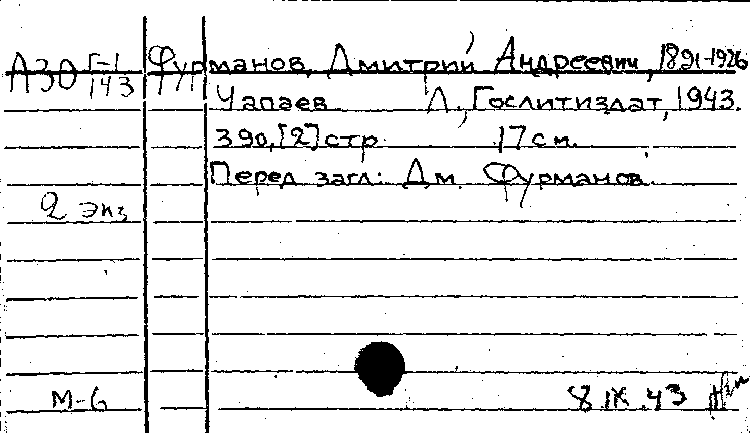 А30 Г-1/143 Фурманов, Дмитрий Андреевич, 1891-1926
Чапаев Л., Гослитиздат, 1943.
390,[2] стр. 17 см.
Перед загл: Дм. Фурманов.
2 экз
М-6 8 IX 43